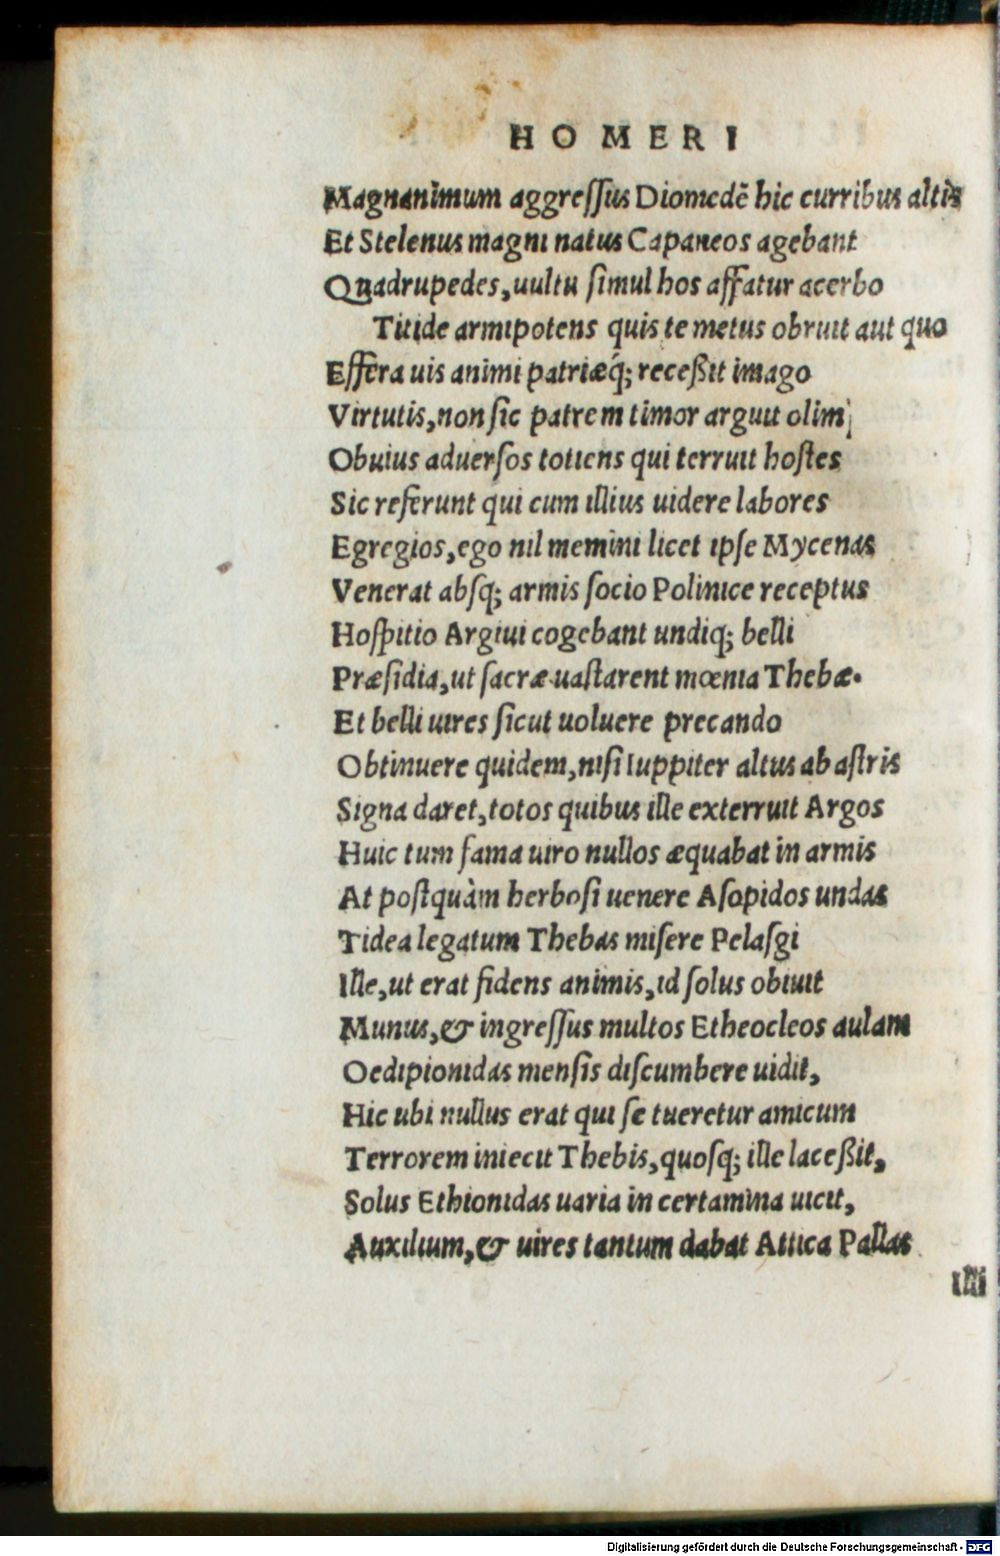 HOMERI
Magnanimum aggreſſus Diomedē hic curribus altis
Et Stelenus magni natus Capaneos agebant
Quadrupedes, uultu ſimul hos affatur acerbo
Titide armipotens quis te metus obruit aut quo
Effera uis animi patriæq́; receßit imago
Virtutis, non ſic patrem timor arguit olim
Obuius aduerſos totiens qui terruit hoſtes
Sic referunt qui cum illius uidere labores
Egregios, ego nil memini licet ipſe Mycenas
Venerat abſq; armis ſocio Polinice receptus
Hoſpitio Argiui cogebant undiq; belli
Præſidia, ut ſacræ uaſtarent mœnia Thebæ.
Et belli uires ſicut uoluere precando
Obtinuere quidem, niſi Iuppiter altus ab aſtris
Signa daret, totos quibus ille exterruit Argos
Huic tum fama uiro nullos æquabat in armis
At poſtquàm herboſi uenere Aſopidos undas
Tidea legatum Thebas miſere Pelaſgi
Ille, ut erat fidens animis, id ſolus obiuit
Munus, & ingreſſus multos Etheocleos aulam
Oedipionidas menſis diſcumbere uidit,
Hic ubi nullus erat qui ſe tueretur amicum
Terrorem iniecit Thebis, quoſq; ille laceßit,
Solus Ethionidas uaria in certamina uicit,
Auxilium, & uires tantum dabat Attica Pallas
Illi
Digitalisierung gefördert durch die Deutsche Forschungsgemeinschaft - DFG